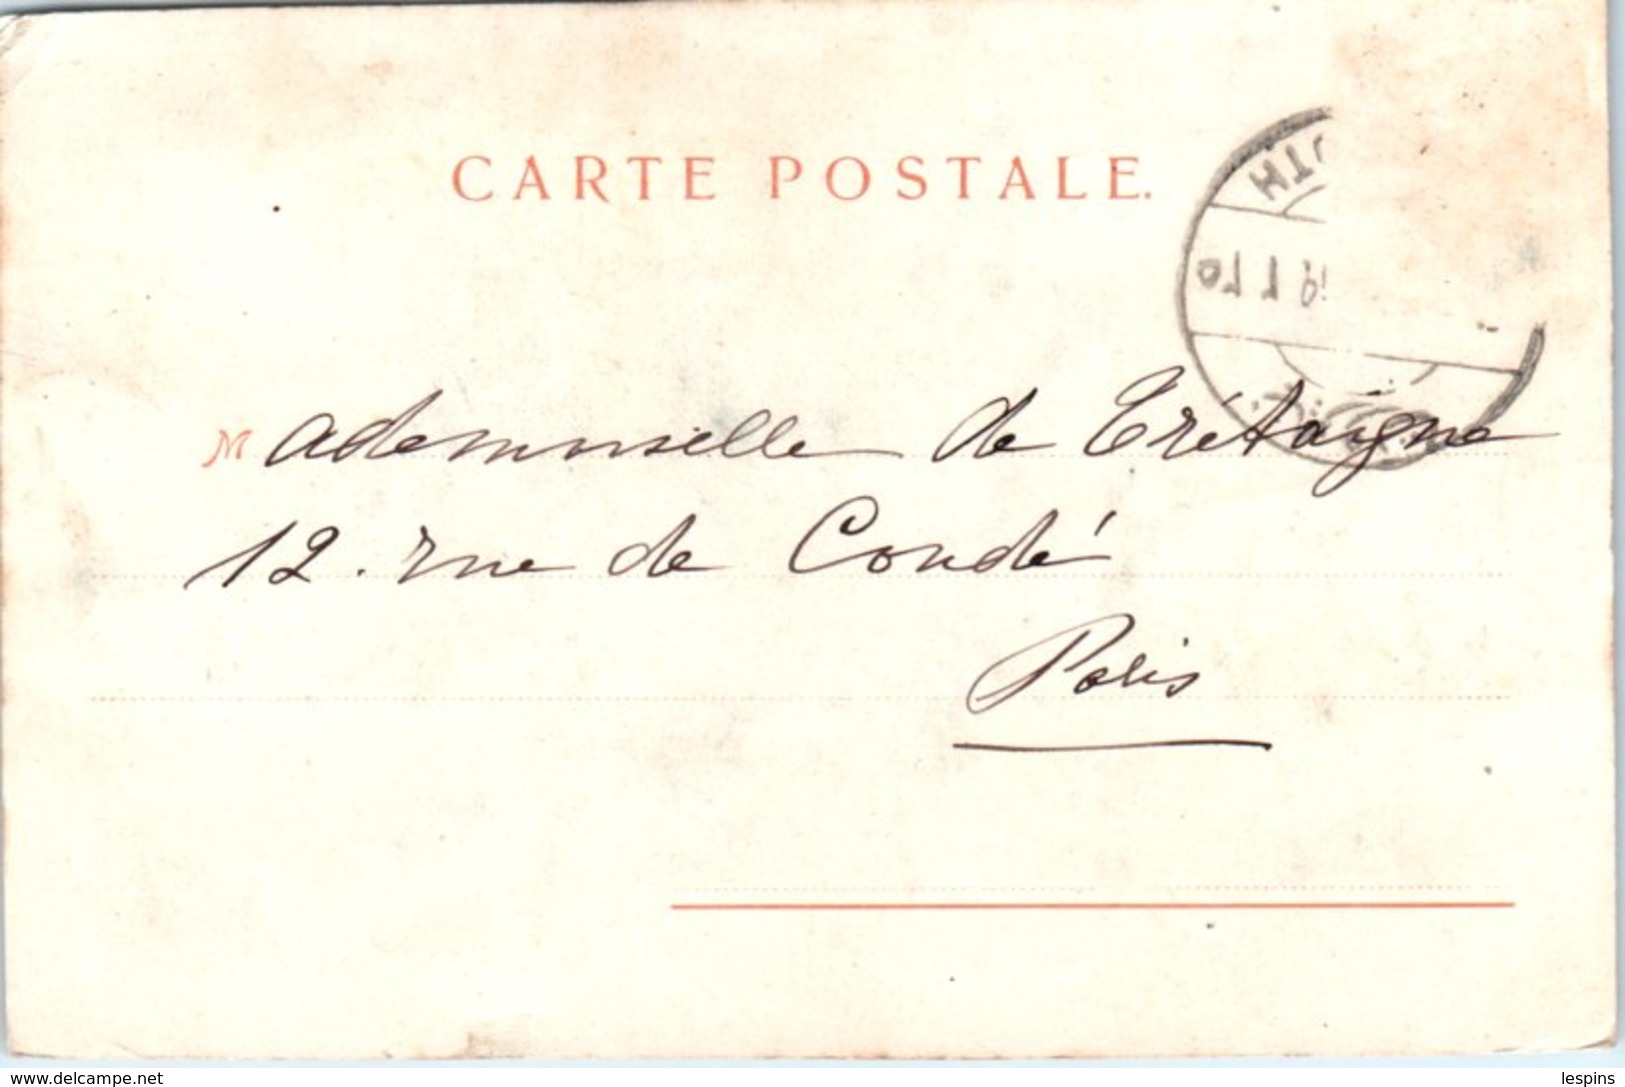 CARTE POSTALE.
Mademoiselle de Trétaigne
12. rue de Condé
Paris
www.delcampe.net
lespins